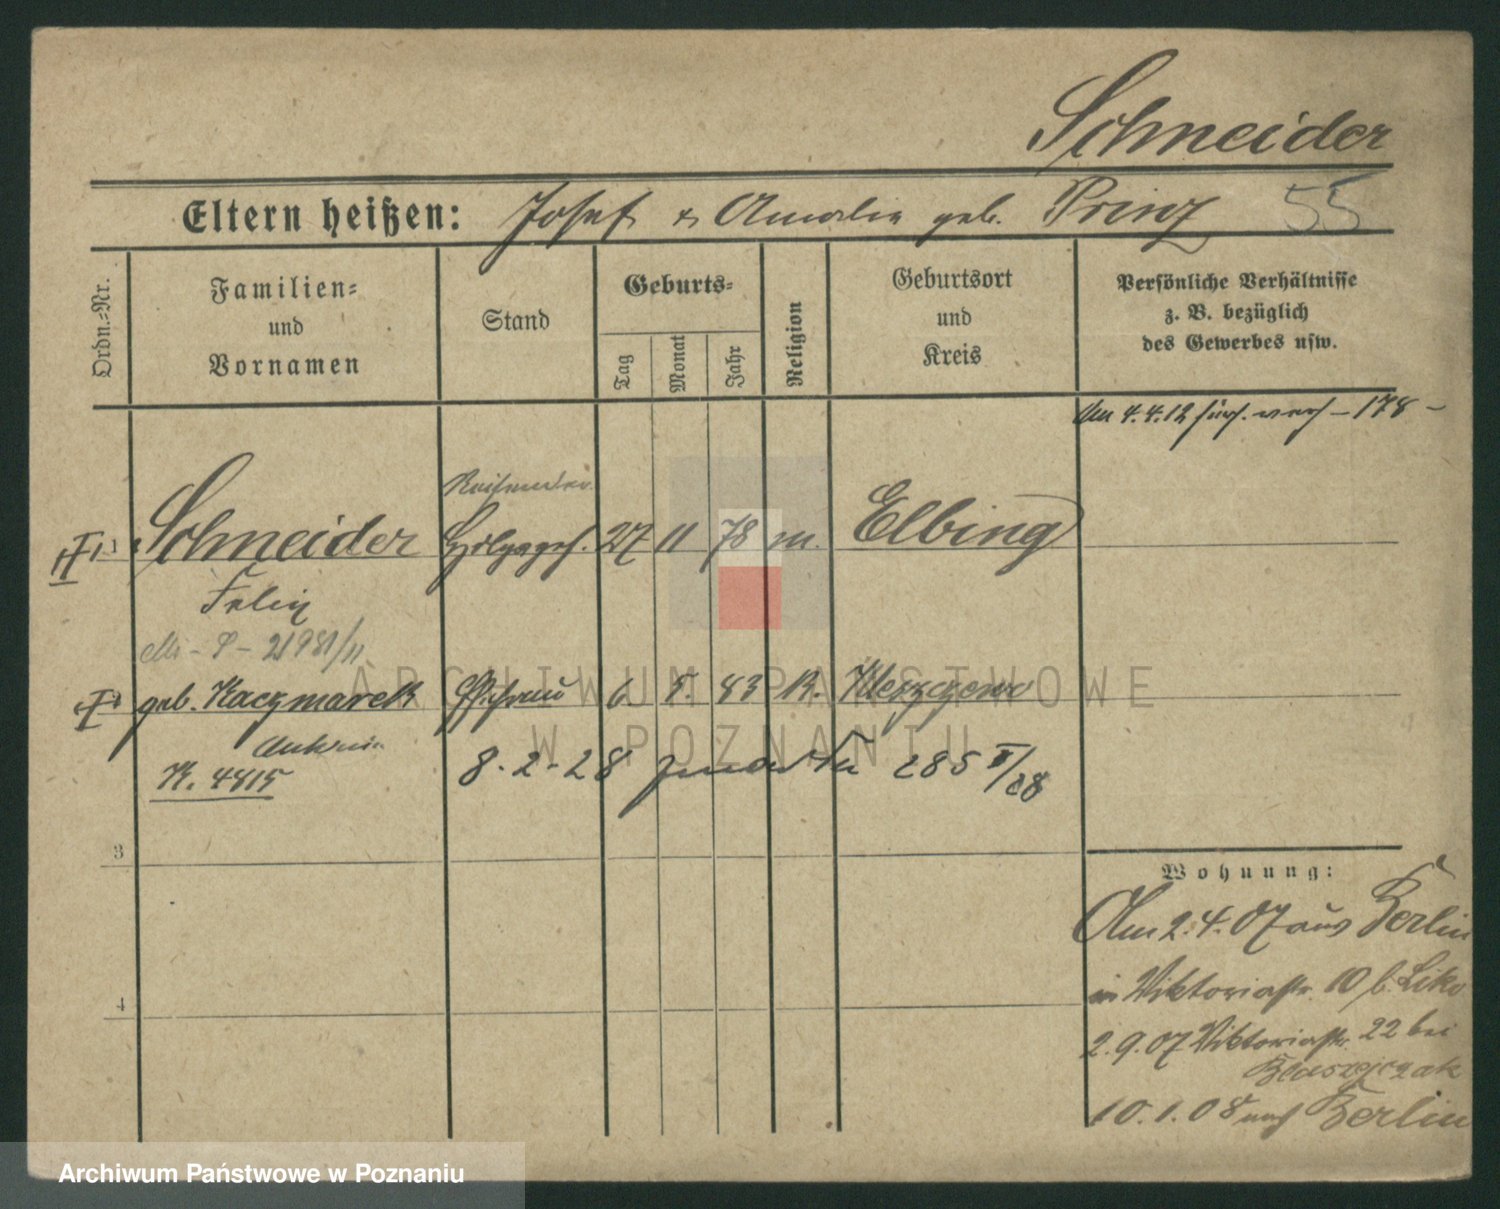 Schneider
Eltern heißen: Josef & Amalie geb. Prinz 55
Ordn.-Nr.
Familien-
und
Vornamen
Stand
Geburts-
Tag
Monat
Jahr
Religion
Geburtsort
und
Kreis
Persönliche Verhältnisse
z. B. bezüglich
des Gewerbes usw.
Am 4.4.12 – 178 –
Schneider 27 11 78 m. Elbing
Felix
geb. Kaczmarek Ehefrau 6. 5. 83 K.
Antonie
K. 4815
8.-2-28 zmarła 285 II/28
3
4
Wohnung:
Am 2.4.07 aus Berlin
in Viktoriastr. 10 b. Liko
2.9.07 Viktoriastr. 22 bei
Blaszczak
10.1.08 nach Berlin
ARCHIWUM PAŃSTWOWE
W POZNANIU
Archiwum Państwowe w Poznaniu